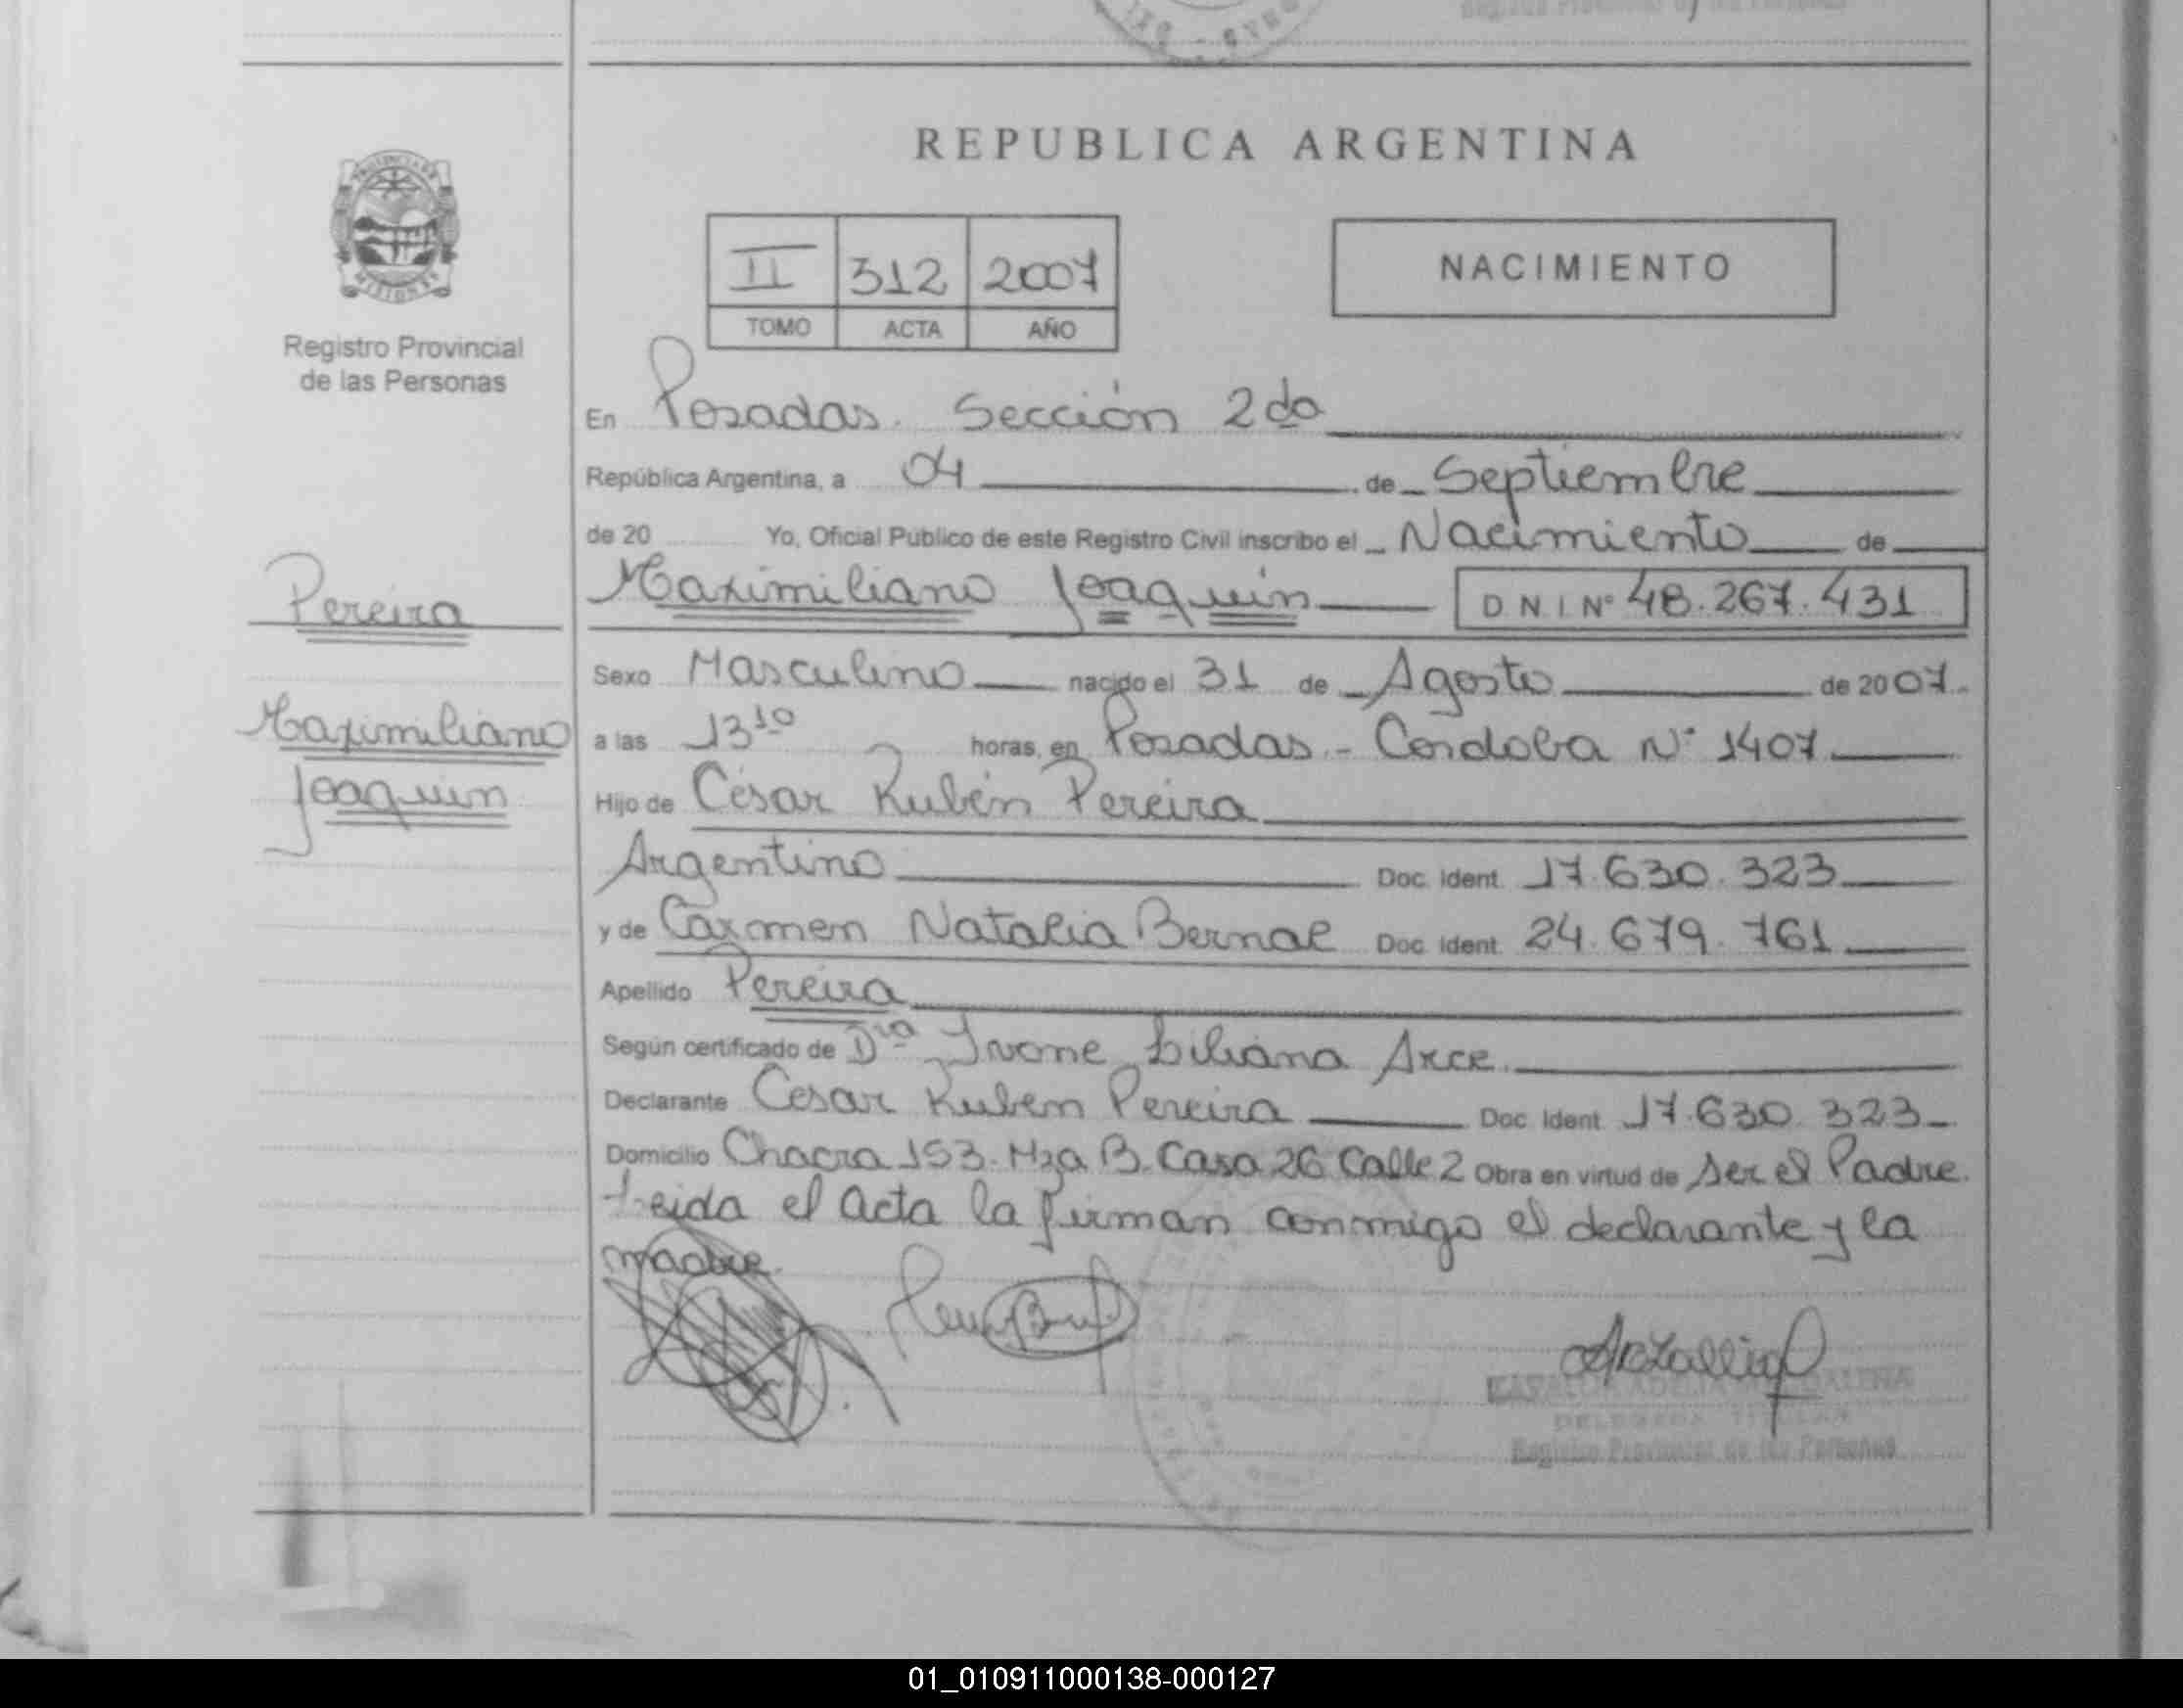 REPUBLICA ARGENTINA
PROVINCIA DE
MISIONES
Registro Provincial
de las Personas
II 312 2007
TOMO ACTA AÑO
NACIMIENTO
En Posadas. Sección 2da
República Argentina, a 04 de Septiembre
de 20 Yo, Oficial Público de este Registro Civil inscribo el Nacimiento de
Pereira
Maximiliano Joaquin
Maximiliano Joaquin D N I Nº 48.267.431
Sexo Masculino nacido el 31 de Agosto de 2007.
a las 13 10 horas, en Posadas - Cordoba Nº 1407
Hijo de César Rubén Pereira
Argentino Doc. Ident. 17.630.323
y de Carmen Natalia Bernal Doc. Ident. 24.679.761
Apellido Pereira
Según certificado de Dra Ivone Liliana Arce.
Declarante Cesar Ruben Pereira Doc. Ident. 17.630.323
Domicilio Chacra 153. Mza B. Casa 26 Calle 2 Obra en virtud de Ser el Padre.
Leida el acta la firman conmigo el declarante y la
madre.
DELEGADA TITULAR
Registro Provincial de las Personas
01_010911000138-000127